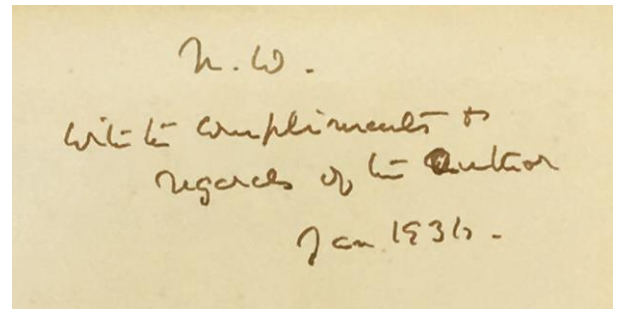 N. W.
with the compliments &
regards of the Author
Jan 1936.